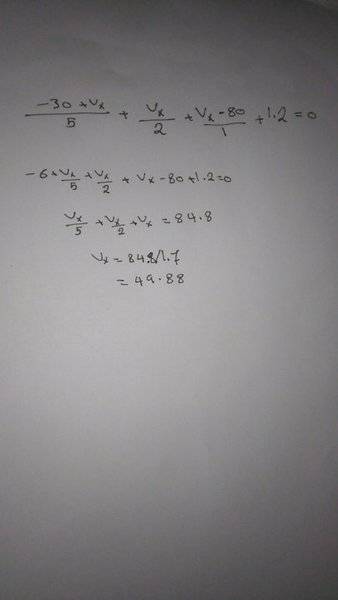 (-30 + Vx)/5 + Vx/2 + (Vx - 80)/1 + 1.2 = 0
-6 + Vx/5 + Vx/2 + Vx - 80 + 1.2 = 0
Vx/5 + Vx/2 + Vx = 84.8
Vx = 84.8/1.7
= 49.88